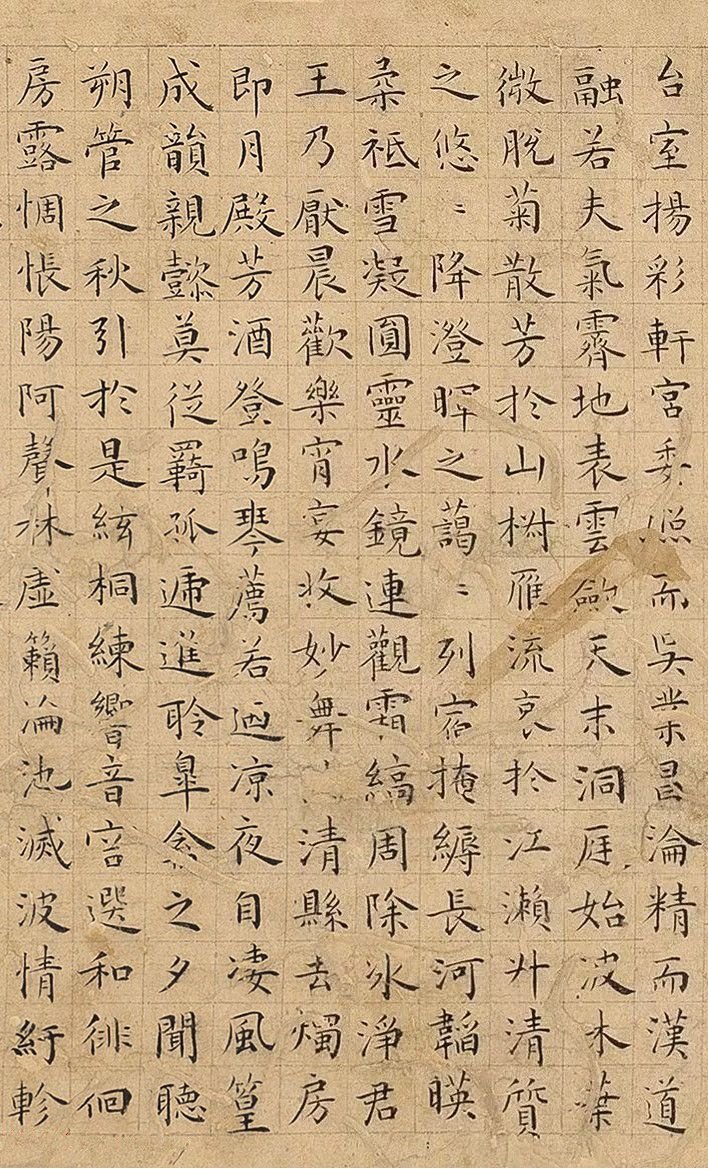 台室揚彩軒宮委照而吳業昌淪精而漢道
融若夫氣霽地表雲斂天末洞庭始波木葉
微脫菊散芳於山椒雁流哀於江瀨升清質
之悠〻降澄暉之藹〻列宿掩縟長河韜暎
柔祇雪凝圓靈水鏡連觀霜縞周除冰淨君
王乃厭晨歡樂宵宴收妙舞清縣去燭房
即月殿芳酒登鳴琴薦若迺凉夜自凄風篁
成韻親懿莫從羇孤遞進聆皋禽之夕聞聽
朔管之秋引於是絃桐練響音容選和徘徊
房露惆悵陽阿聲林虛籟淪池滅波情紆軫